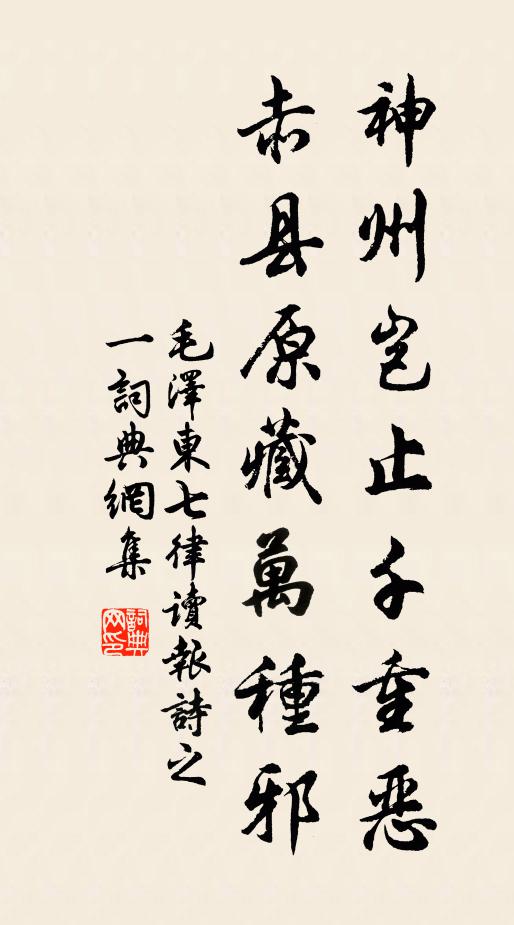 神州岂止千重恶
赤县原藏萬種邪
毛澤東七律讀報詩之
一詞典網集
詞典
网印